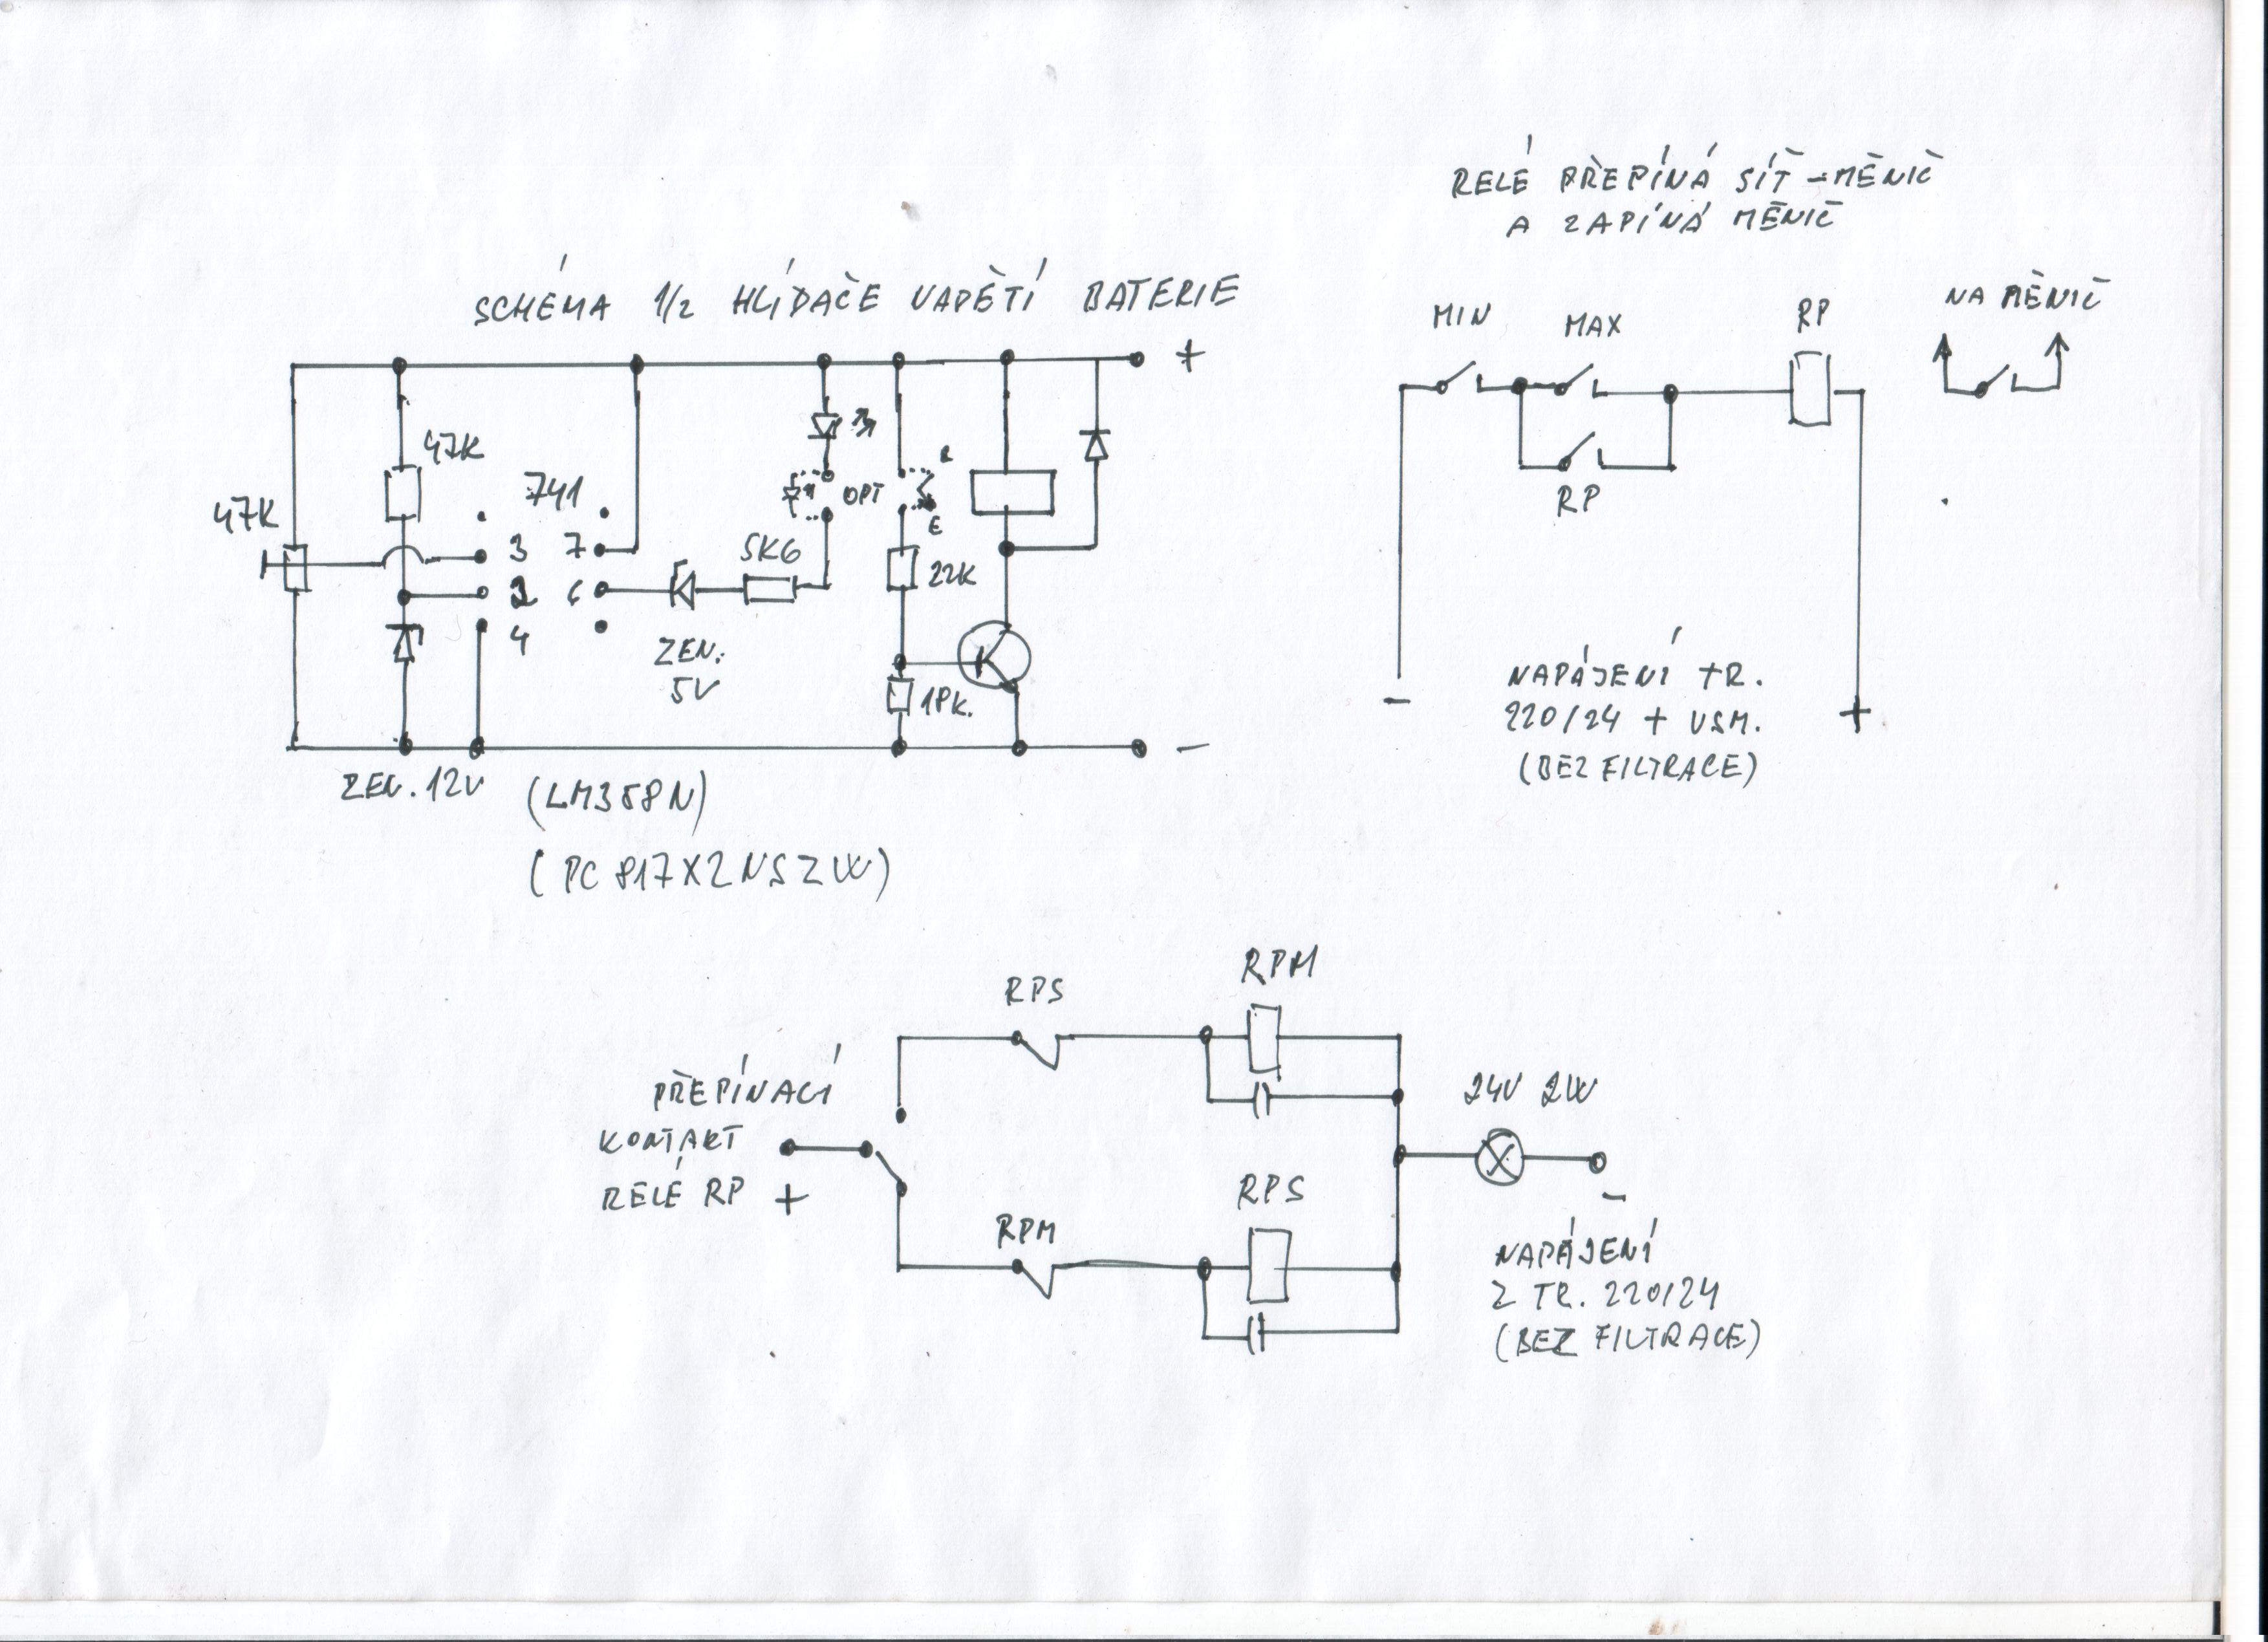 RELÉ PŘEPÍNÁ SÍŤ - MĚNIČ
A ZAPÍNÁ MĚNIČ
SCHÉMA 1/2 HLÍDAČE NAPĚTÍ BATERIE
+
47K
47K
741
3 7
2 6
4
ZEN.
5V
5K6
OPT
E
22K
18K.
-
ZEN. 12V
(LM358N)
(PC817X2NSZW)
MIN
MAX
RP
NA MĚNIČ
RP
-
NAPÁJENÍ TR.
220/24 + USM.
(BEZ FILTRACE)
+
RPS
RPM
PŘEPÍNACÍ
KONTAKT
RELÉ RP +
RPM
RPS
24V 2W
-
NAPÁJENÍ
Z TR. 220/24
(BEZ FILTRACE)